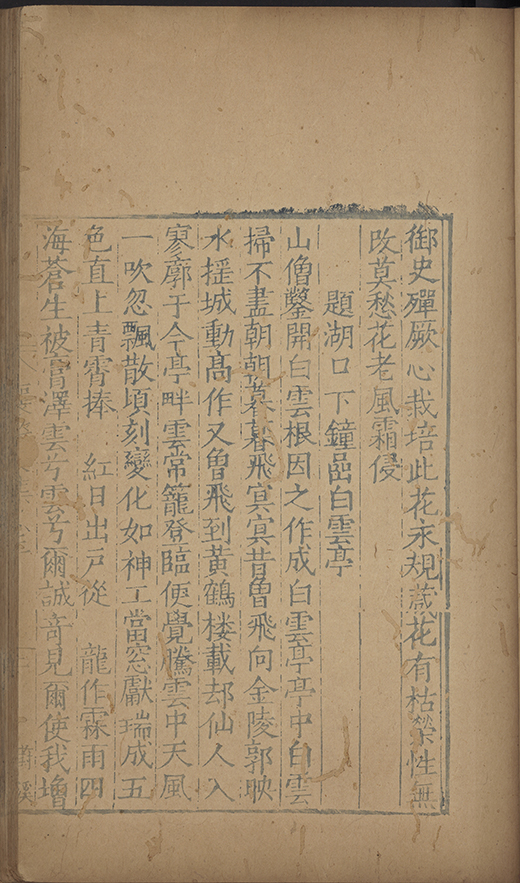 御史殫厥心栽培此花永規箴花有枯榮性無
改莫愁花老風霜侵
題湖口下鐘嵓白雲亭
山僧鑿開白雲根因之作成白雲亭亭中白雲
掃不盡朝朝暮暮飛冥冥昔曾飛向金陵郭映
水搖城動高作又曾飛到黃鶴楼載却仙人入
寥廓于今亭畔雲常籠登臨便覺騰雲中天風
一吹忽飄散頃刻變化如神工當窓獻瑞成五
色直上青霄捧 紅日出戸從 龍作霖雨四
海蒼生被膏澤雲兮雲兮爾誠奇見爾使我增